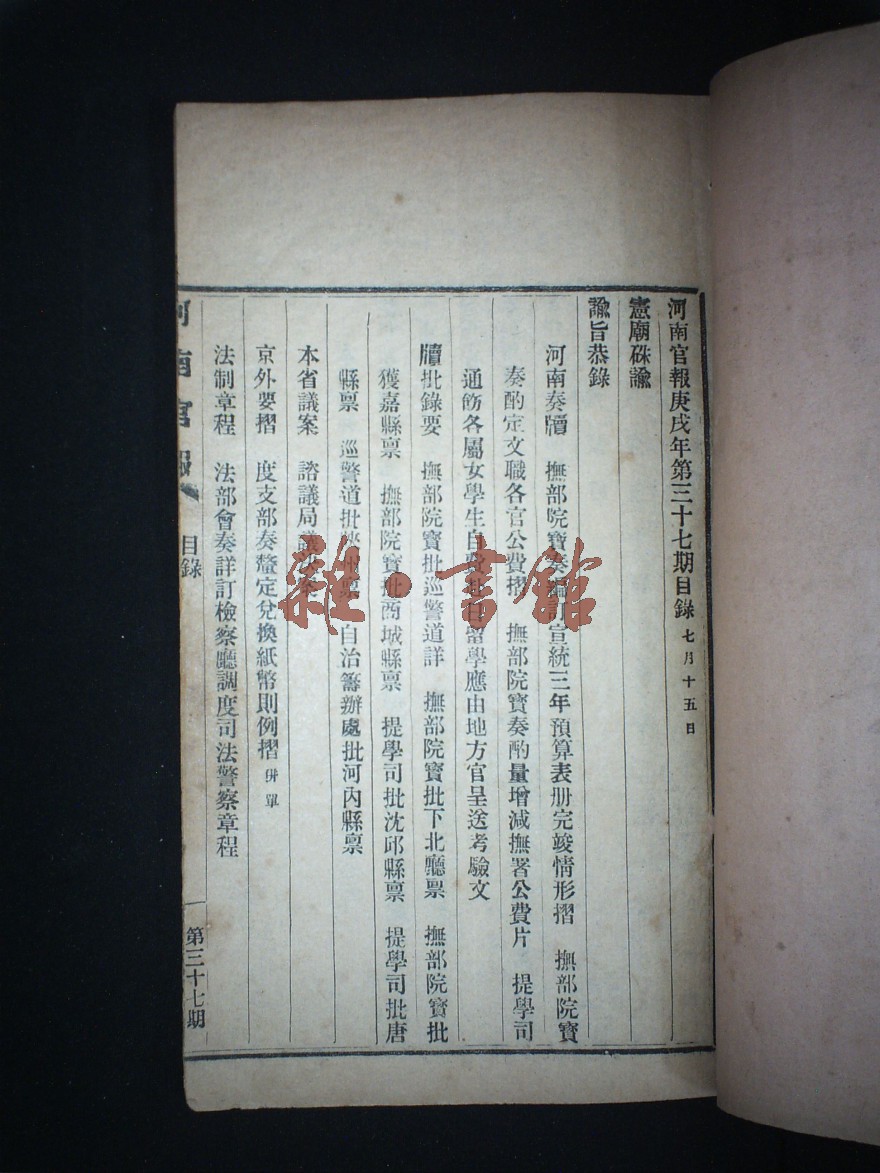 河南官報庚戌年第三十七期目錄 七月十五日
憲廟硃諭
諭旨恭錄
河南奏牘 撫部院寶奏編訂宣統三年預算表册完竣情形摺 撫部院寶
奏酌定文職各官公費摺 撫部院寶奏酌量增減撫署公費片 提學司
通飭各屬女學生自費赴日留學應由地方官呈送考驗文
牘批錄要 撫部院寶批巡警道詳 撫部院寶批下北廳禀 撫部院寶批
獲嘉縣禀 撫部院寶批西城縣禀 提學司批沈邱縣禀 提學司批唐
縣禀 巡警道批 州禀 自治籌辦處批河內縣禀
本省議案 諮議局議決案
京外要摺 度支部奏釐定兌換紙幣則例摺 併單
法制章程 法部會奏詳訂檢察廳調度司法警察章程
河南官報 目錄 第三十七期
雜·書館